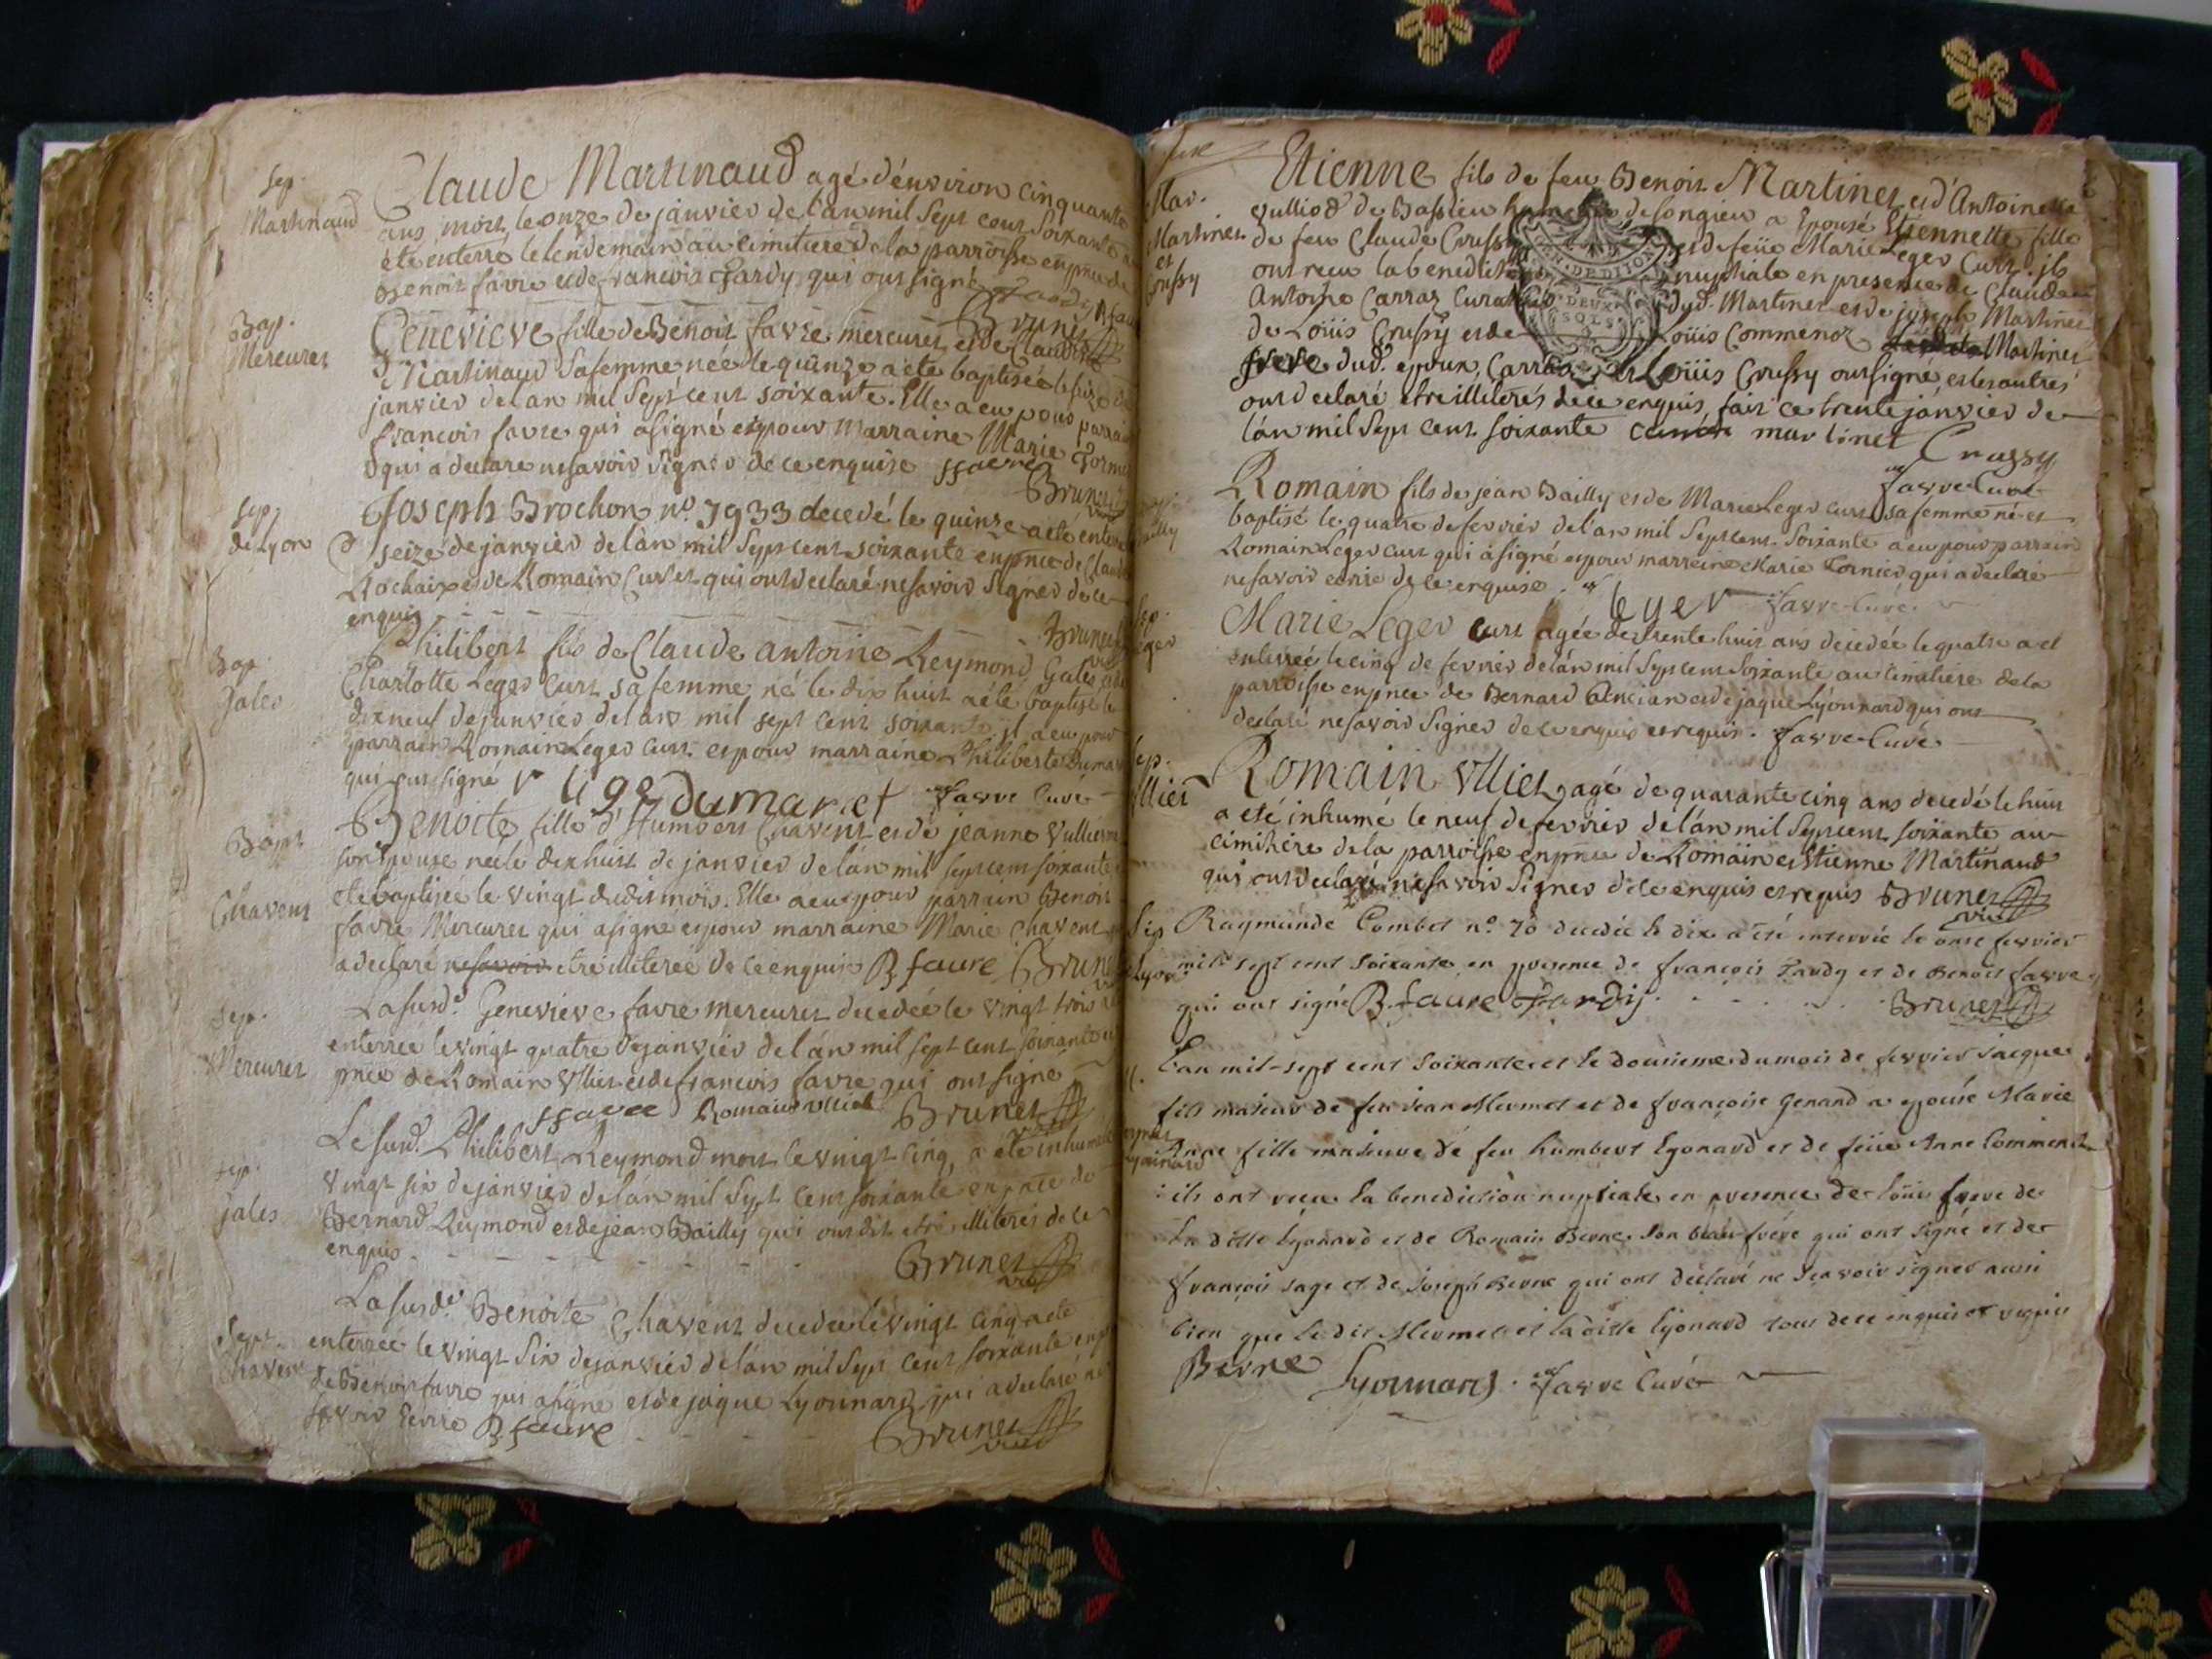 Sep.
Martinaud
Claude Martinaud agé d'environ cinquante
ans mort le onze de janvier de l'an mil sept cent soixante a
été enterré le lendemain au cimitiere de la parroisse en pnce de
Benoit favre et de francois Tardy qui ont signé Tardy B faure
Brunet
Bap.
Mercuret
Genevieve fille de Benoit favre mercuret et de Claudine
Martinaud sa femme née le quinze a eté baptisée le seize de
janvier de l'an mil sept cent soixante. Elle a eu pour parrain
francois favre qui a signé et pour marraine Marie Tornier
qui a declaré ne savoir signer de ce enquise ffavre
Brunet
Sep.
de Lyon
Joseph Brochon n.o 7933 decedé le quinze a eté enterré
seize de janvier de l'an mil sept cent soixante en pnce de Claude
Rochaix et de Romain Curtet qui ont declaré ne savoir signer de ce
enquis
Brunet
Bap.
Jales
Philibert fils de Claude antoine Reymond Gales et de
Charlotte Leger Curt sa femme né le dix huit a eté baptisé le
dix neuf de janvier de l'an mil sept cent soixante il a eu pour
parrain Romain Leger Curt et pour marraine Philiberte Dumaret
qui ont signé r leger dumaret favre Curé
Bapt
Chavent
Benoite fille d'Humbert Chavent et de jeanne Vulliermet
son epouse née le dix huit de janvier de l'an mil sept cent soixante a
eté baptisée le vingt dudit mois. Elle a eu pour parrain Benoit
favre Mercuret qui a signé et pour marraine Marie Chavent qui
a declaré ne savoir etre illiterée de ce enquise B faure Brunet
Sep.
Mercuret
La susd.e Genevieve favre mercuret decedée le vingt trois a eté
enterrée le vingt quatre de janvier de l'an mil sept cent soixante en
pnce de Romain Ulliet et de francois favre qui ont signé
ffavre Romain ulliet Brunet
Sep.
jales
Le susd. Philibert Reymond mort le vingt cinq a été inhumé le
vingt six de janvier de l'an mil sept cent soixante en pnce de
Bernard Reymond et de jean Bailly qui ont dit etre illiterés de ce
enquis
Brunet
Sept.
Chavent
La susd.e Benoite Chavent decedée le vingt cinq a eté
enterrée le vingt six de janvier de l'an mil sept cent soixante en pnce
de Benoit favre qui a signé et de jaque Lyonnard qui a declaré ne
savoir ecrire B faure
Brunet
Mar.
Martinet
et
Crussy
Etienne fils de feu Benoit Martinet et d'Antoinette
vulliod de Baslieu de songieu a Epousé Etiennette fille
de feu Claude Crussy et de feüe Marie Leger Curt. jls
ont recu la benediction nuptiale en presence de Claude
Antoine Carraz Curateur dud. Martinet et de joseph Martinet
de Loüis Crussy et de Loüis Commenoz Martinet
frere dud. epoux, Carraz et Loüis Crussy ont signé, et les autres
ont declaré etre illiterés de ce enquis, fait ce trente janvier de
l'an mil sept cent soixante martinet Crussy
favre Curé
Bailly
Romain fils de jean Bailly et de Marie Leger curt sa femme né et
baptisé le quatre de fevrier de l'an mil sept cent soixante a eu pour parrain
Romain Leger curt qui a signé et pour marreine Marie Tornier qui a declaré
ne savoir ecrire de ce enquise. r leger favre Curé
Sep.
Leger
Marie Leger curt agée de trente huit ans decedée le quatre a eté
enterrée le cinq de fevrier de l'an mil sept cent soixante au cimitiere de la
parroisse en pnce de Bernard et de jaque Lyonnard qui ont
declaré ne savoir signer de ce enquis et requis. favre Curé
Sep.
Ulliet
Romain Ulliet agé de quarante cinq ans decedé le huit
a eté inhumé le neuf de fevrier de l'an mil sept cent soixante au
cimitiere de la parroisse en pnce de Romain et Etienne Martinaud
qui ont declaré ne savoir signer de ce enquis et requis Brunet
Sep
Lyon
Raymonde Combet n.o 70 decedée le dix a été enterrée le onze fevrier
mil sept cent soixante en presence de françois Tardy et de Benoit favre
qui ont signé B. faure Tardy
Brunet
L'an mil-sept cent soixante et le douzieme du mois de fevrier jacque
fils majeur de feu jean Mermet et de françoise Genand a epousé Marie
Anne fille mineure de feu humbert Lyonard et de feüe Anne Commenoz
ils ont reçu la benediction nuptiale en presence de Loüis frere de
la ditte Lyonard et de Romain Berne son beau-frère qui ont signé et de
françois sage et de joseph Berne qui ont déclaré ne sçavoir signer aussi
bien que le dit Mermet et la ditte lyonard tous de ce enquis et requis
Berne Lyonnard. favre Curé